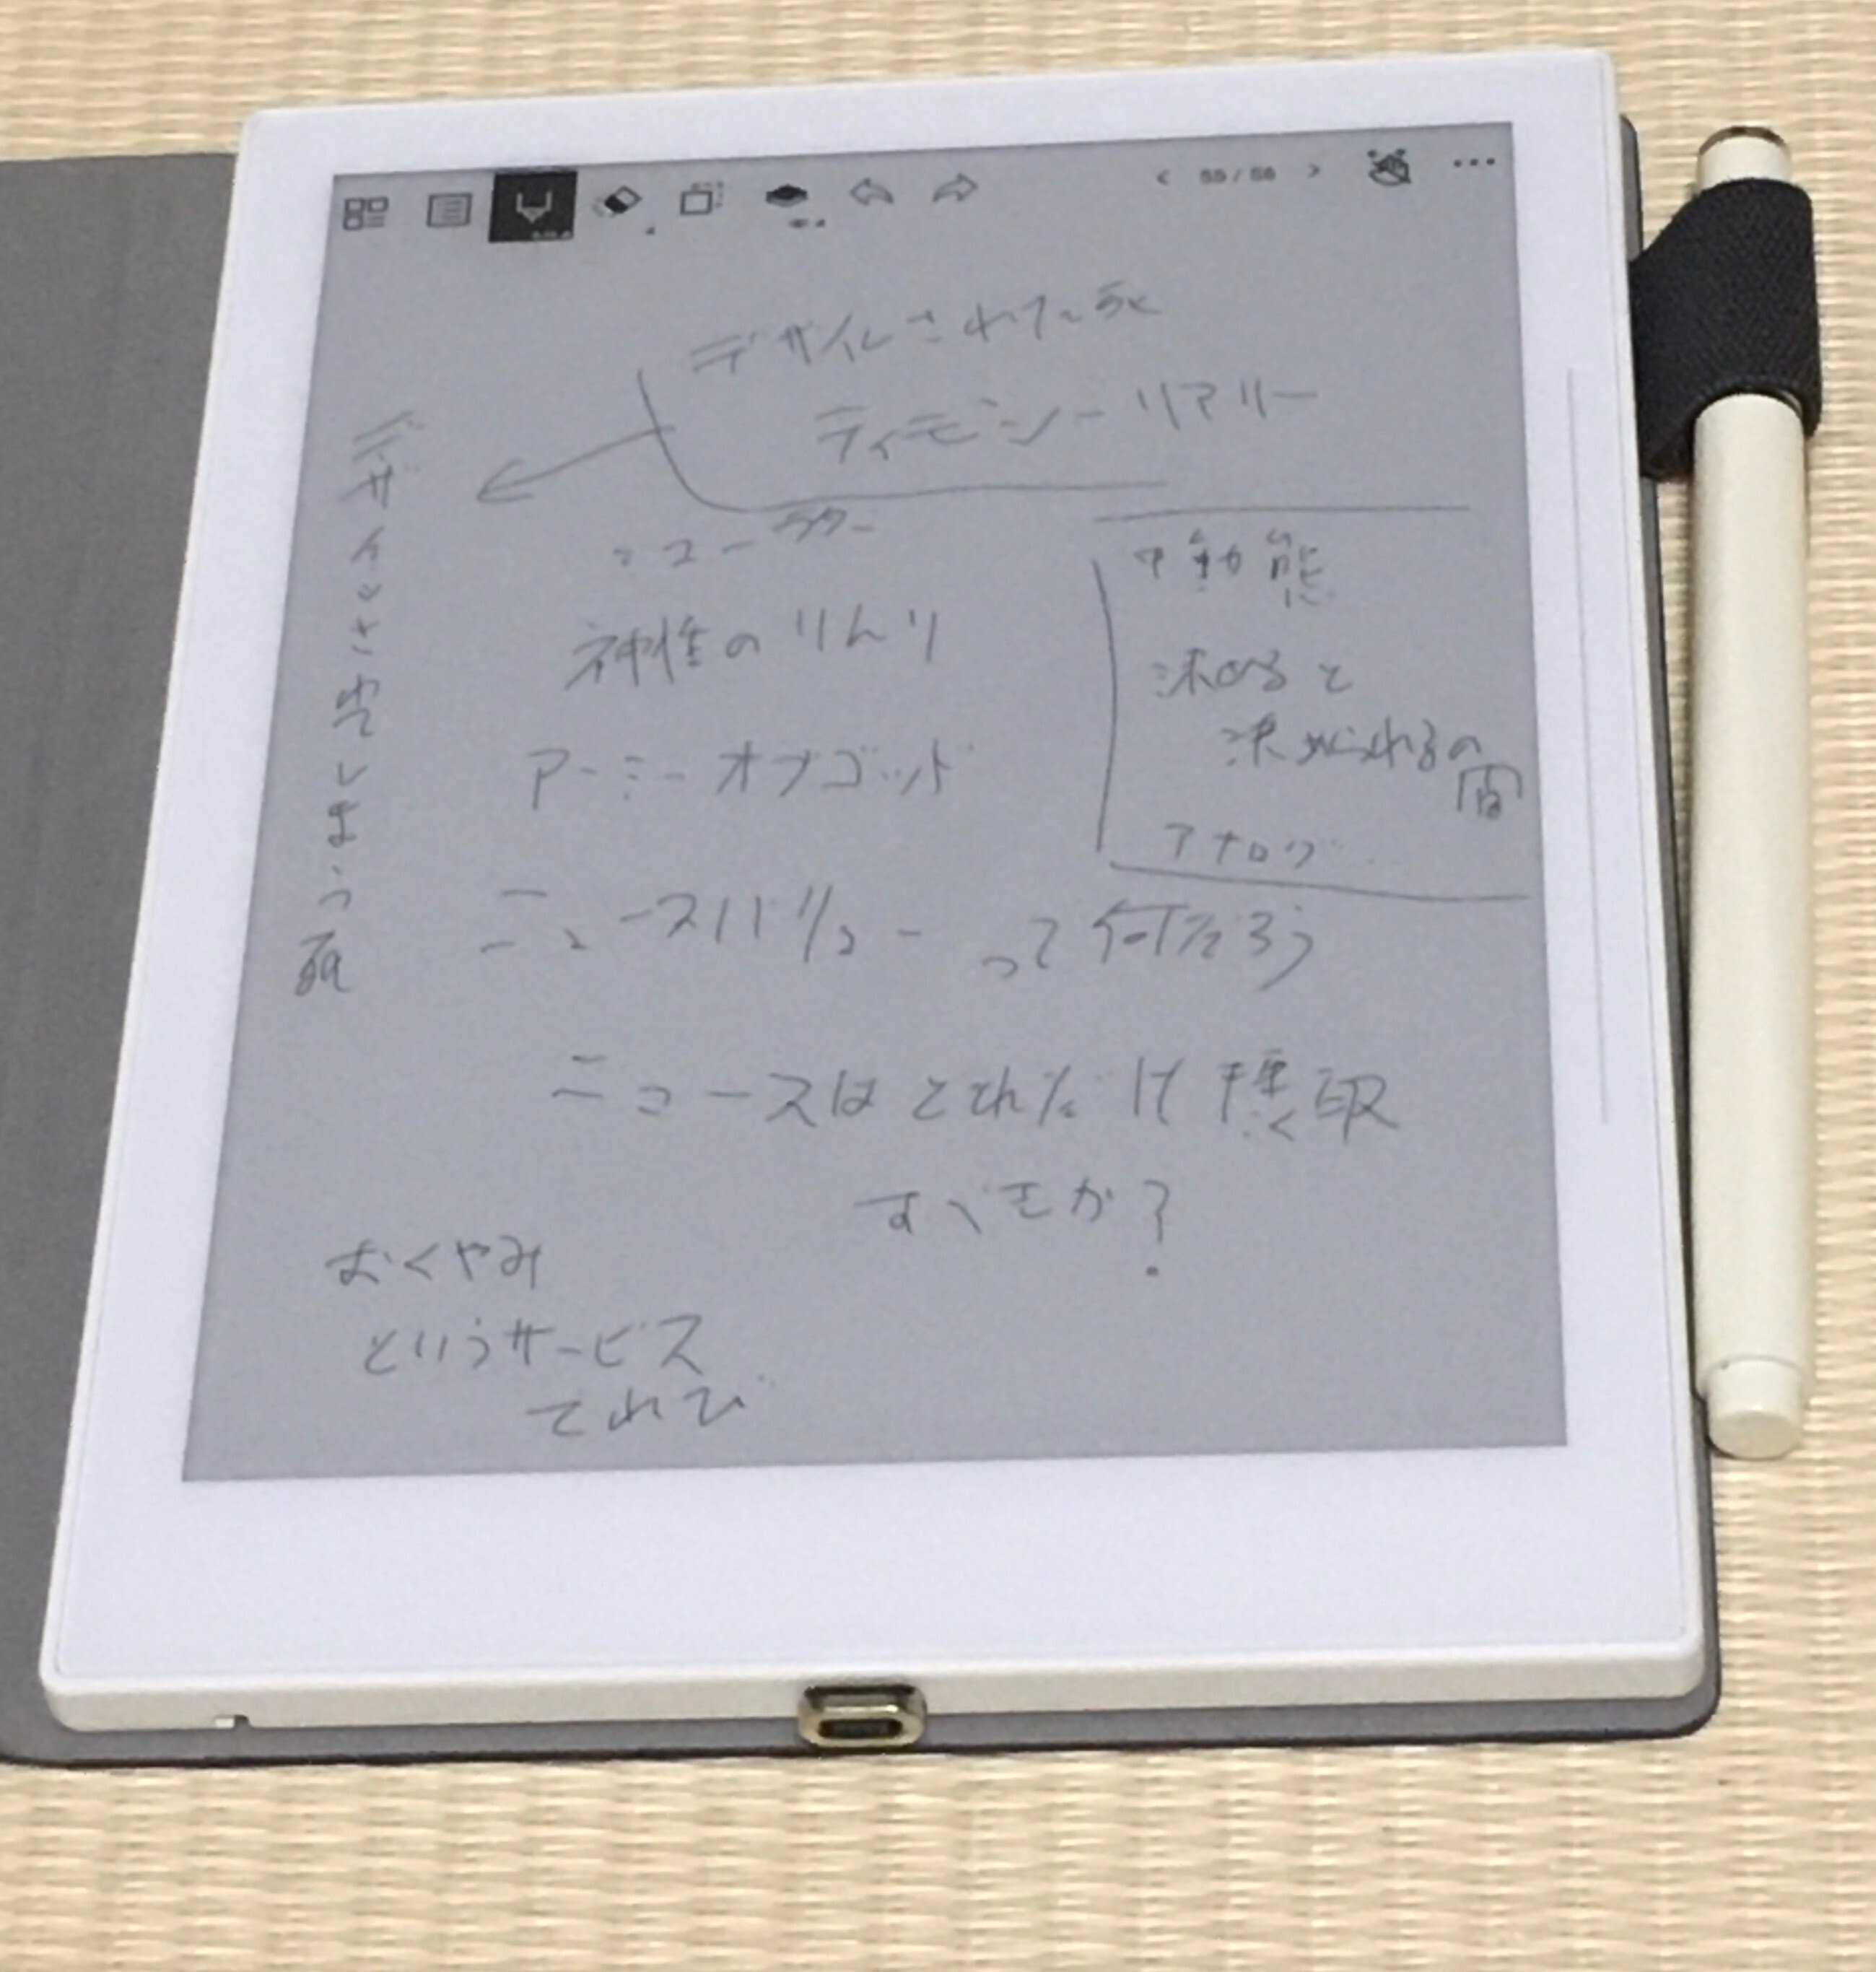 55 / 56
デザインされた死
ティモシーリアリー
デザインされてしまう死
中動態
決めると
決められるの
間
アナログ
神性のりんり
アーミーオブゴッド
ニュースバリューって何だろう
ニュースはどれだけ摂取
すべきか?
おくやみ
というサービス
てれび